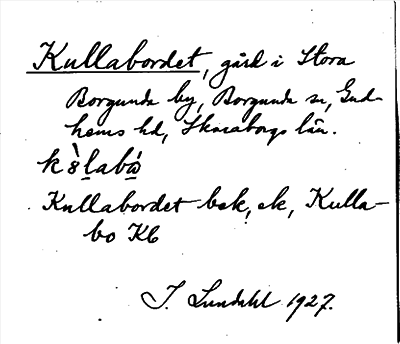 Kullabordet, gård i Stora
Borgunda by, Borgunda sn, Gud-
hems hd, Skaraborgs län.
Kullabordet bek, ek, Kulla-
bo Kb
I. Lundahl 1927.